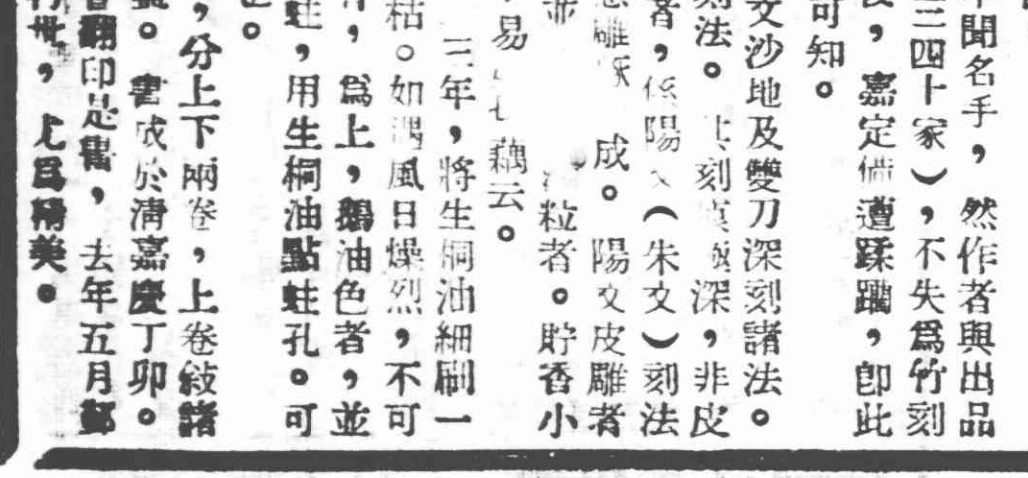 聞名手，然作者與出品
三四十家），不失爲竹刻
，嘉定備遭蹂躪，卽此
可知。
文沙地及雙刀深刻諸法。
刻法。其刻 極深，非皮
者，係陽文（朱文）刻法
成。陽文皮雕者
粒者。貯香小
易 藕云。
三年，將生桐油細刷一
枯。如遇風日燥烈，不可
，爲上，鵝油色者，並
蛀，用生桐油點蛀孔。可
。
，分上下兩卷，上卷敍諸
。書成於清嘉慶丁卯。
翻印是書，去年五月鄞
，尤爲精美。